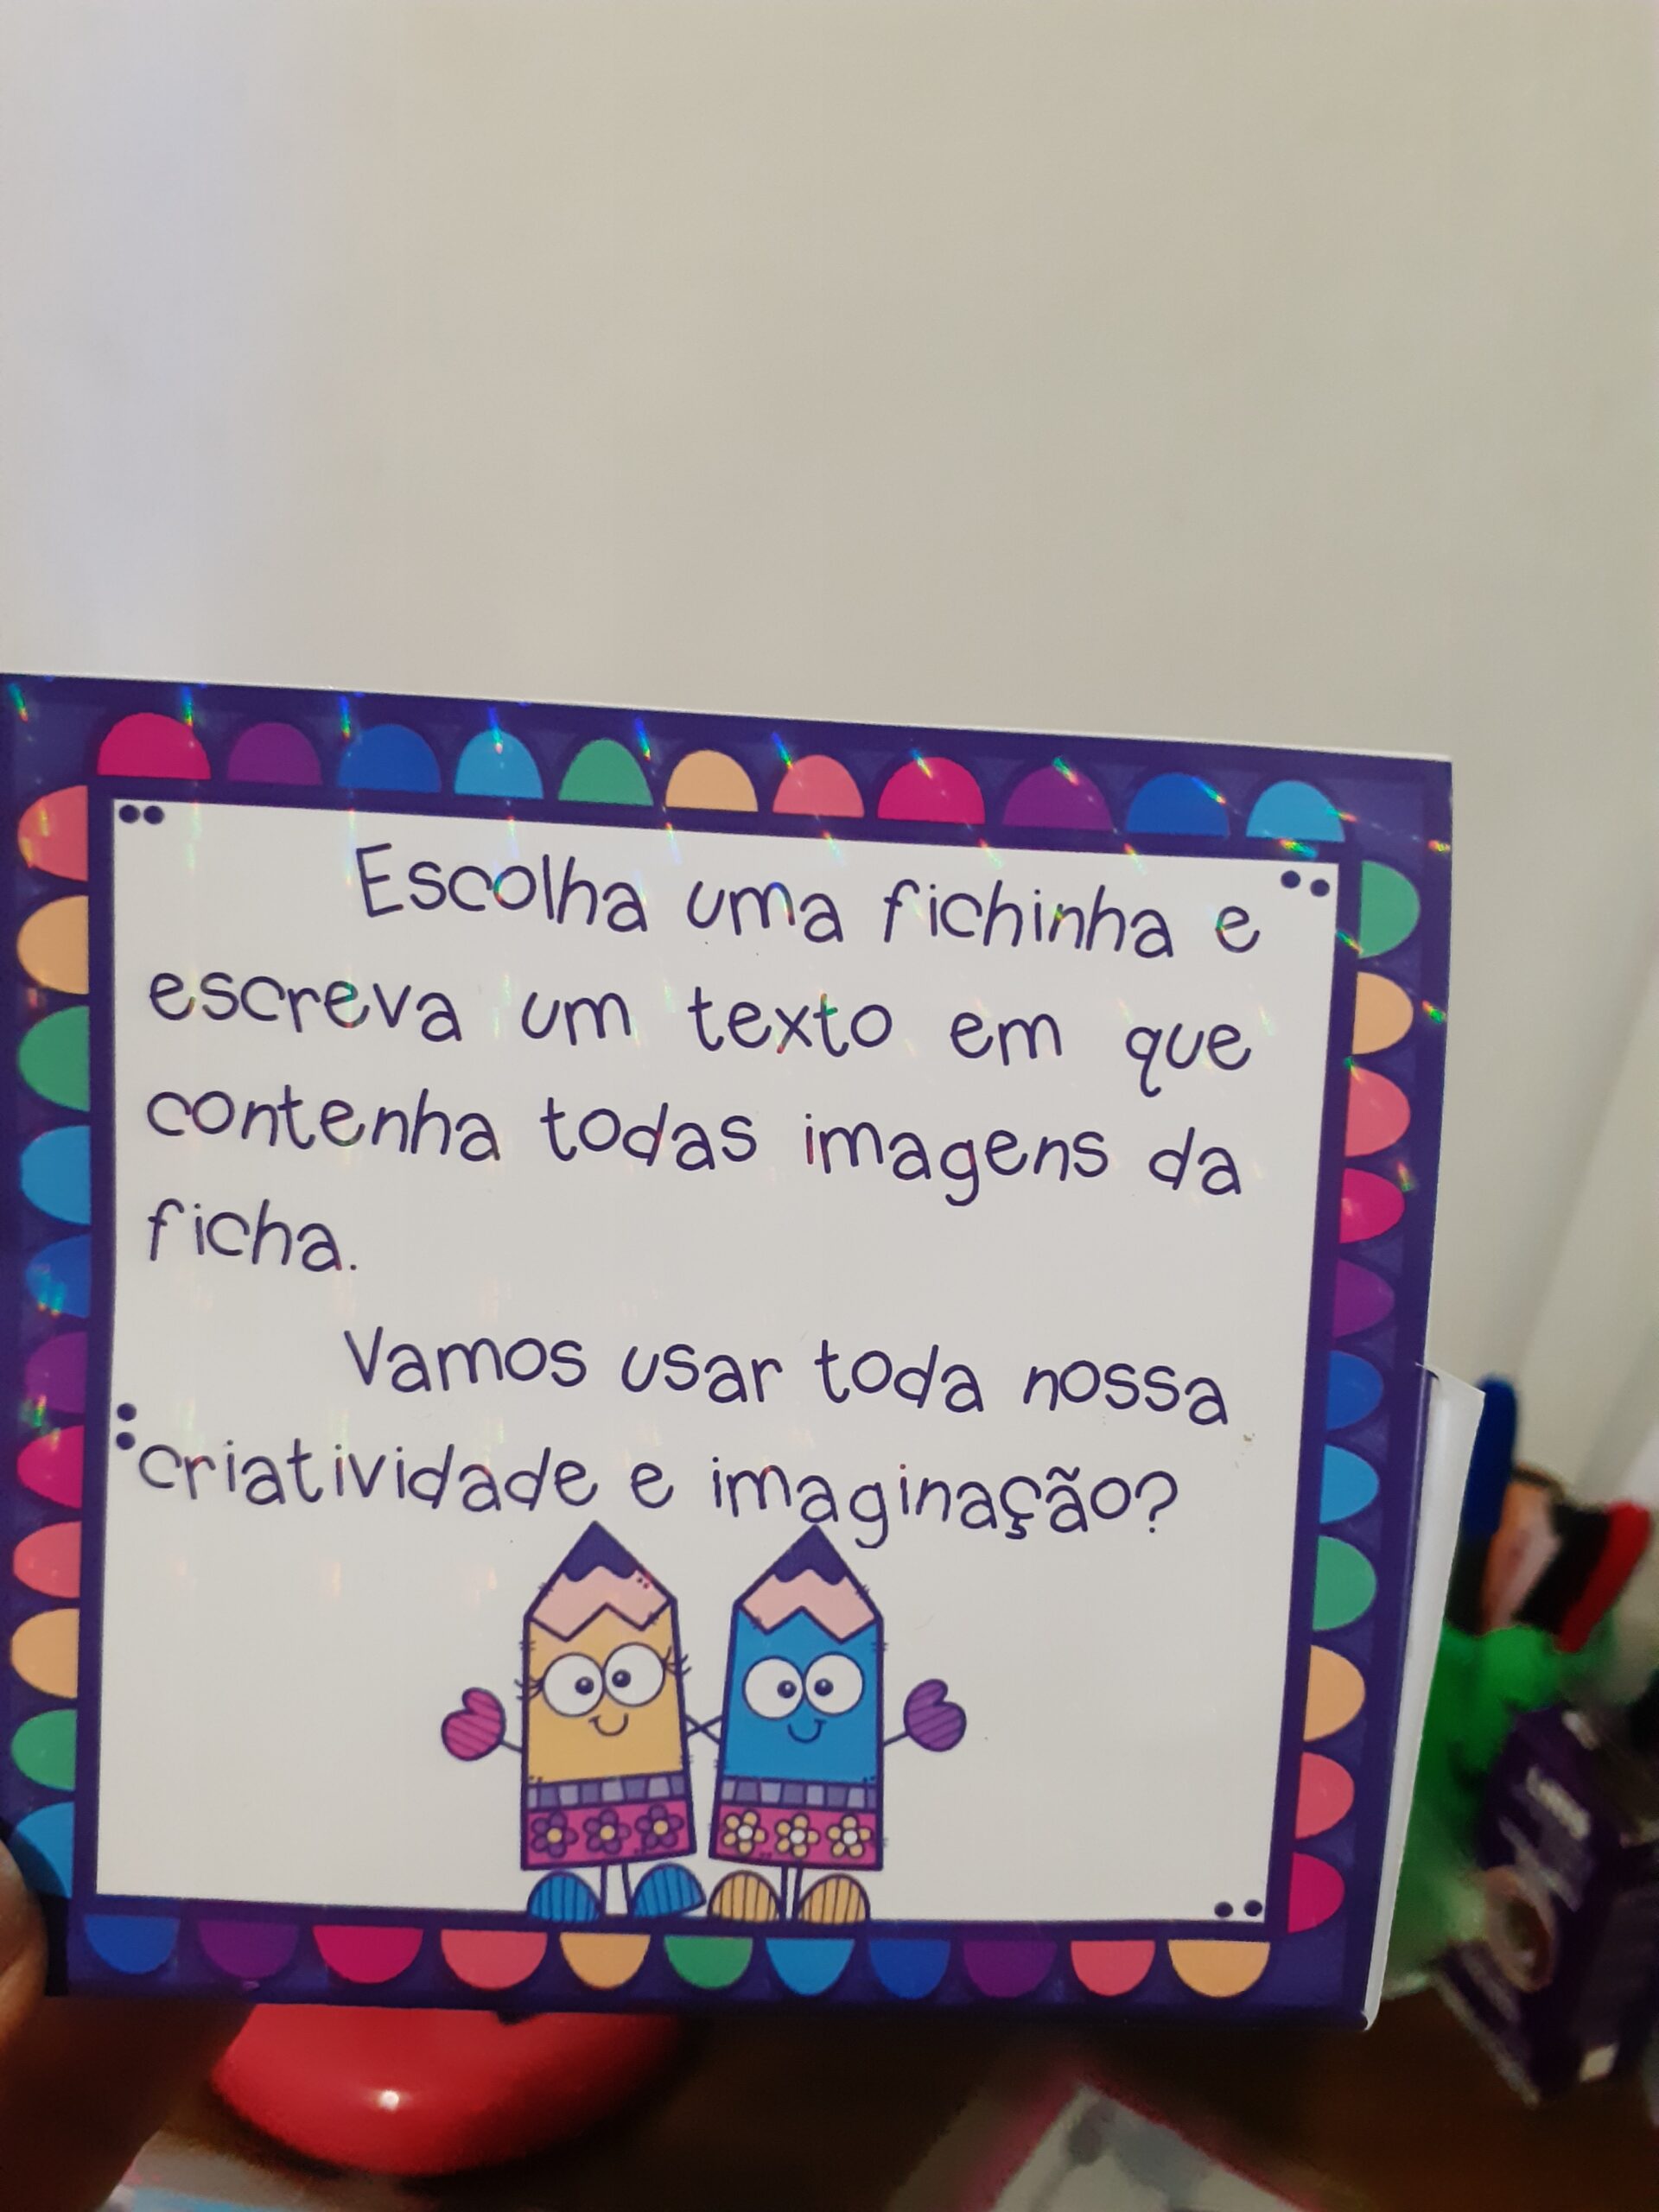 Escolha uma fichinha e
escreva um texto em que
contenha todas imagens da
ficha.
Vamos usar toda nossa
criatividade e imaginação?